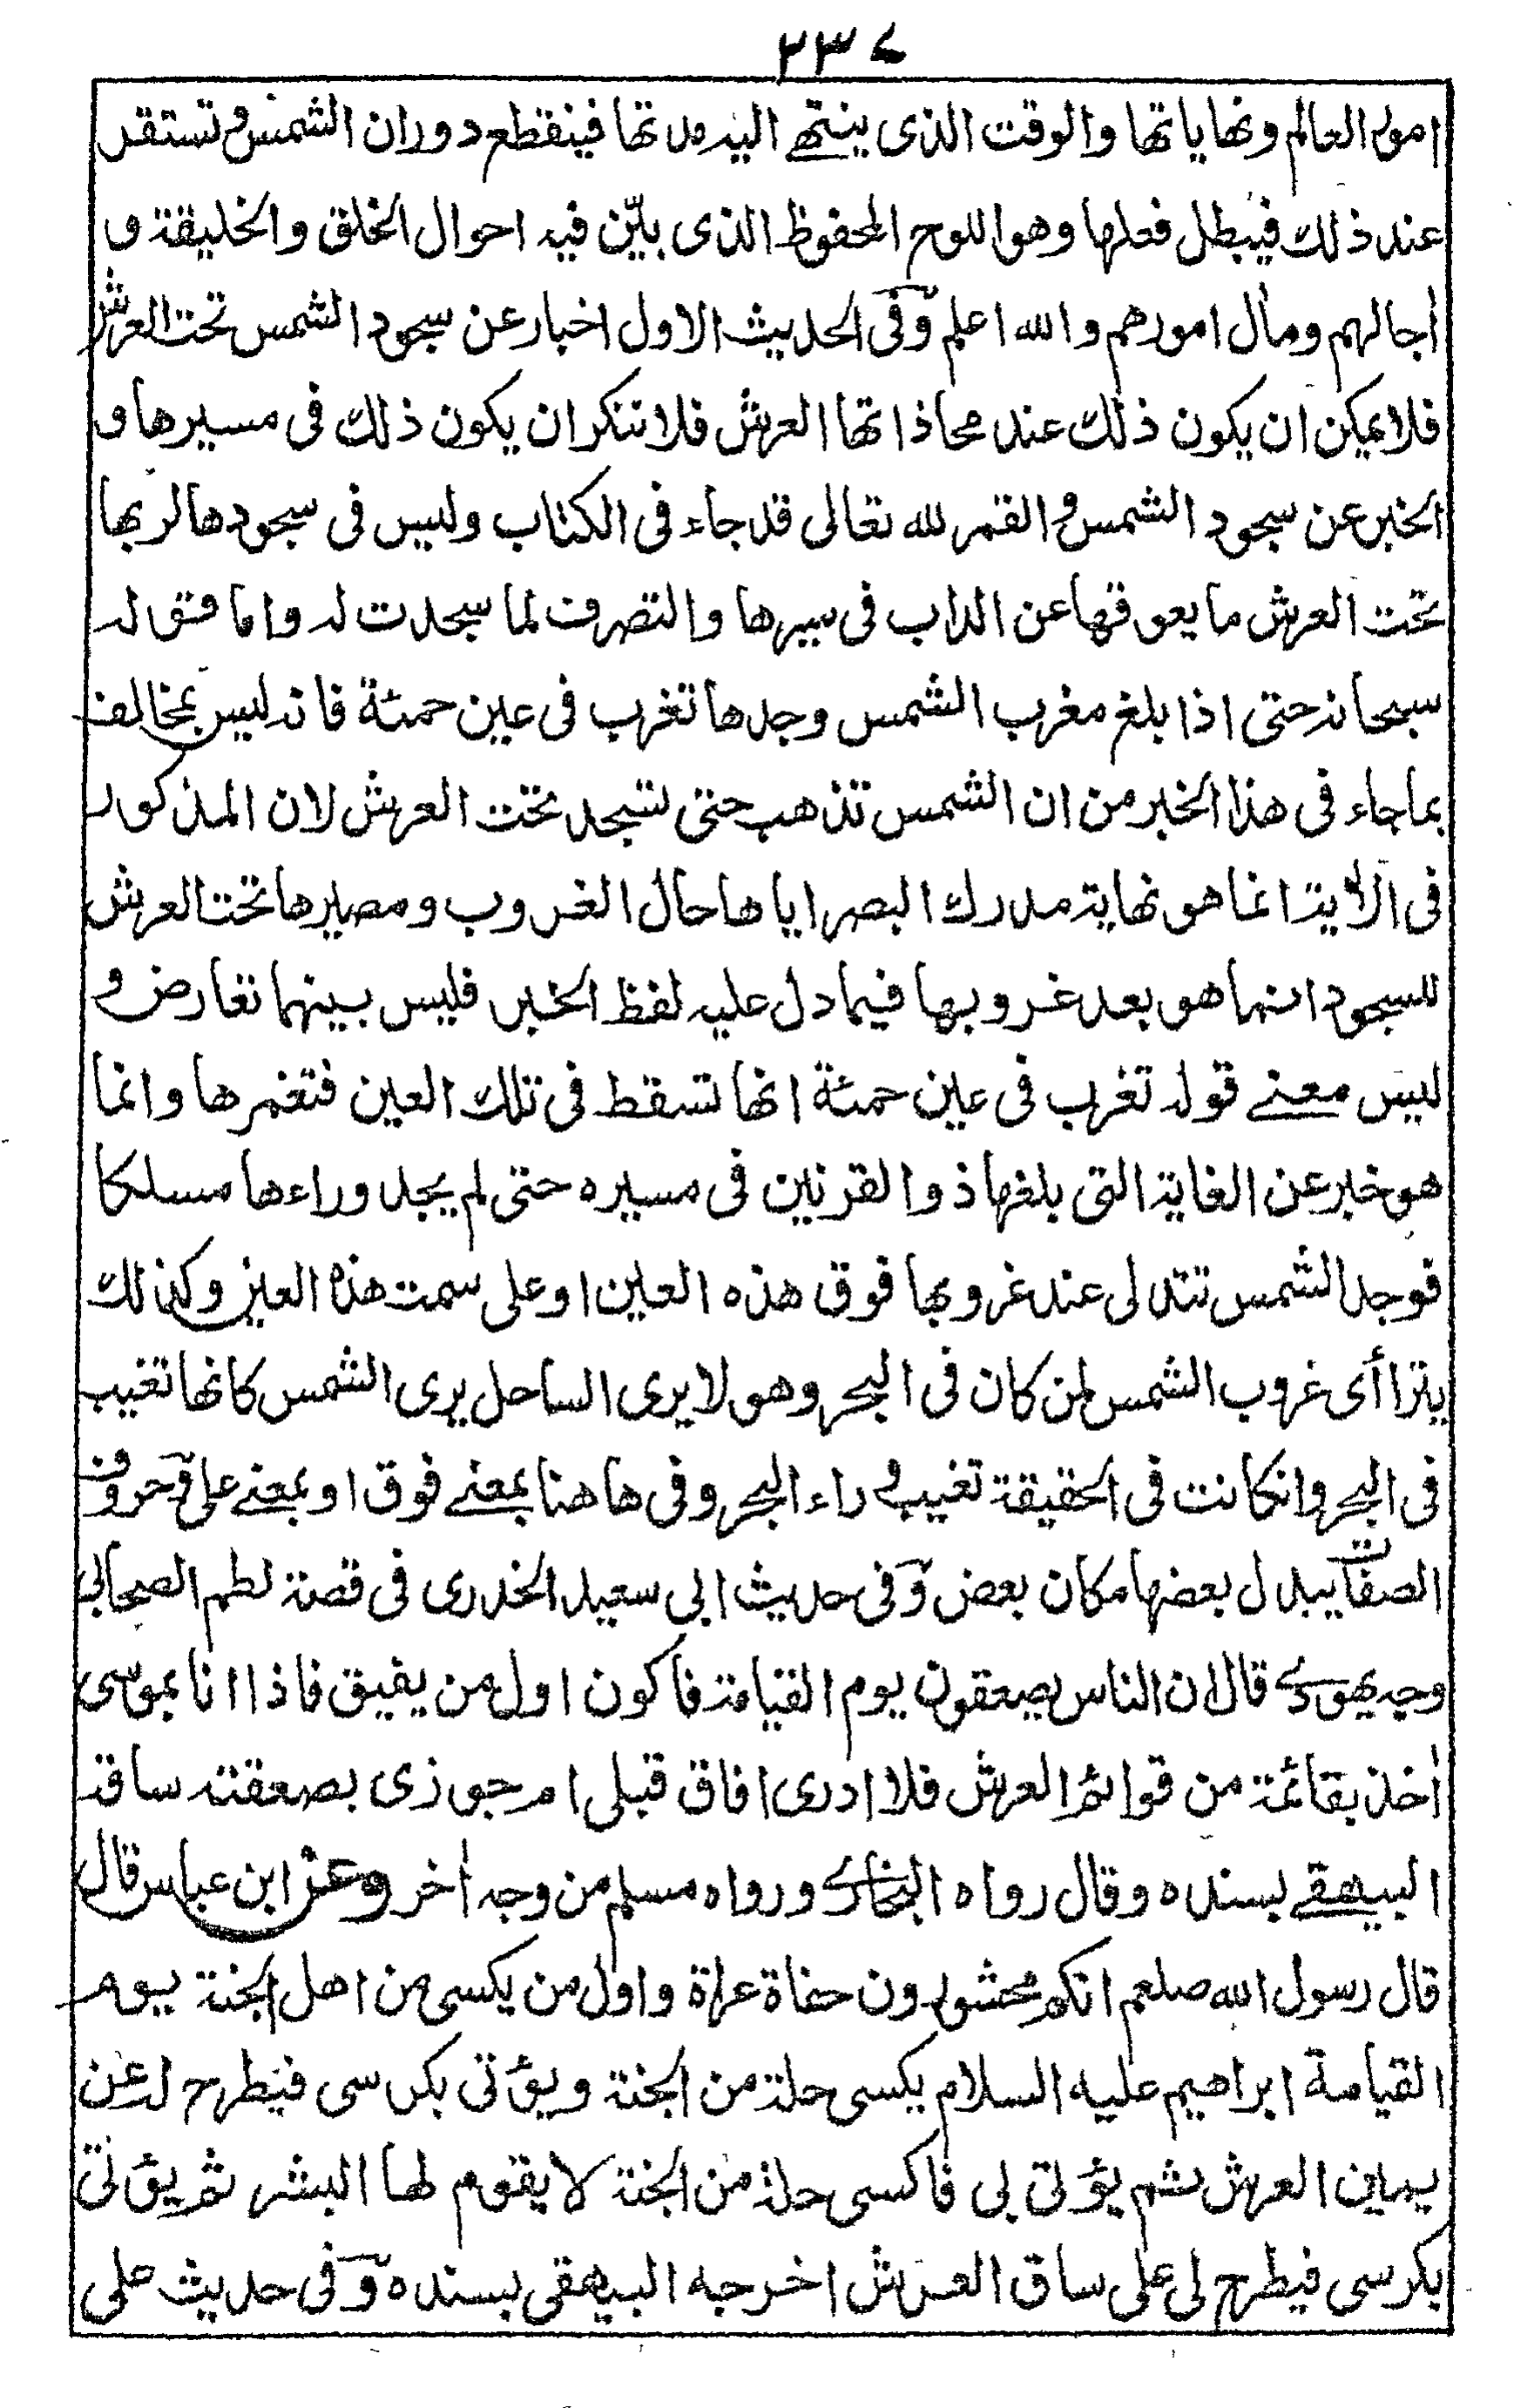 ٢٣٧
امور العالم ونهاياتها والوقت الذى ينتهے اليه مدتها فينقطع دوران الشمس وتستقر
عند ذلك فيبطل فعلها وهو اللوح المحفوظ الذى بيّن فيه احوال الخلق والخليقة و
اٰجالهم ومآل امورهم والله اعلم وفى الحديث الاول اخبار عن سجود الشمس تحت العرش
فلا يمكن ان يكون ذلك عند محاذاتها العرش فلا تنكر ان يكون ذلك فى مسيرها و
الخبر عن سجود الشمس والقمر لله تعالى قد جاء فى الكتاب وليس فى سجودها لربها
تحت العرش ما يعوقها عن الداب فى سيرها والتصرف لما سجدت له واما قوله
سبحانه حتى اذا بلغ مغرب الشمس وجدها تغرب فى عين حمئة فانه ليس بمخالف
بما جاء فى هذا الخبر من ان الشمس تذهب حتى تسجد تحت العرش لان المذكور
فى الاٰية انما هو نهاية مدرك البصر اياها حال الغروب ومصيرها تحت العرش
للسجود انما هو بعد غروبها فيما دل عليه لفظ الخبر فليس بينهما تعارض و
ليس معنے قوله تغرب فى عين حمئة انها تسقط فى تلك العين فتغمرها وانما
هو خبر عن الغاية التى بلغها ذو القرنين فى مسيره حتى لم يجد وراءها مسلكا
فوجد الشمس تتدلى عند غروبها فوق هذه العين او على سمت هذه العين وكذلك
يتراأى غروب الشمس لمن كان فى البحر وهو لا يرى الساحل يرى الشمس كانها تغيب
فى البحر وانكانت فى الحقيقة تغيب وراء البحر وفى ها هنا بمعنے فوق او بمعنے على وحروف
الصفات يبدل بعضها مكان بعض وفى حديث ابى سعيد الخدرى فى قصة لطم الصحابى
وجه يهودے قال ان الناس يصعقون يوم القيامة فاكون اول من يفيق فاذا انا بموسى
اٰخذ بقائمة من قوائم العرش فلا ادرى افاق قبلى ام جوزى بصعقته ساقه
البيهقے بسنده وقال رواه البخارے ورواه مسلم من وجه اٰخر وعن ابن عباس قال
قال رسول الله صلعم انكم محشورون حفاة عراة واول من يكسى من اهل الجنة يوم
القيامة ابراهيم عليه السلام يكسى حلة من الجنة ويؤتى بكرسى فيطرح له عن
يمين العرش ثم يؤتى بى فاكسى حلة من الجنة لا يقوم لها البشر ثم يؤتى
بكرسى فيطرح لى على ساق العرش اخرجه البيهقى بسنده وفى حديث على